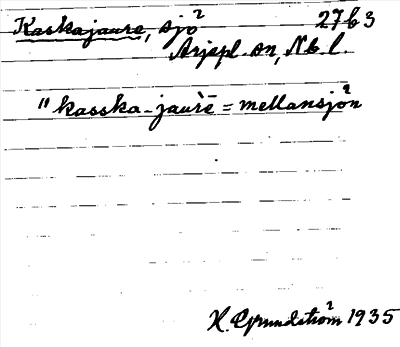 Kaskajaure, sjö 27b3
Arjepl. sn, Nb. l.
" kasska-jaurē = mellansjön
H. Grundström 1935